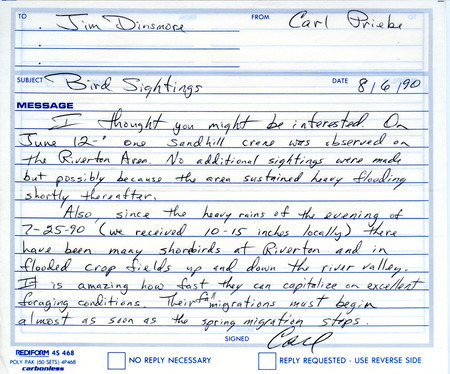 TO Jim Dinsmore FROM Carl Priebe
SUBJECT Bird Sightings DATE 8/6/90
MESSAGE
I thought you might be interested. On
June 12 - one Sandhill crane was observed on
the Riverton Area. No additional sightings were made
but possibly because the area sustained heavy flooding
shortly thereafter.
Also, since the heavy rains of the evening of
7-25-90 (we received 10-15 inches locally) there
have been many shorbirds at Riverton and in
flooded crop fields up and down the river valley.
It is amazing how fast they can capitalize on excellent
foraging conditions. Their fall migrations must begin
almost as soon as the spring migration stops.
SIGNED Carl
REDIFORM 4S 468
POLY PAK (50 SETS) 4P468
carbonless
NO REPLY NECESSARY REPLY REQUESTED - USE REVERSE SIDE